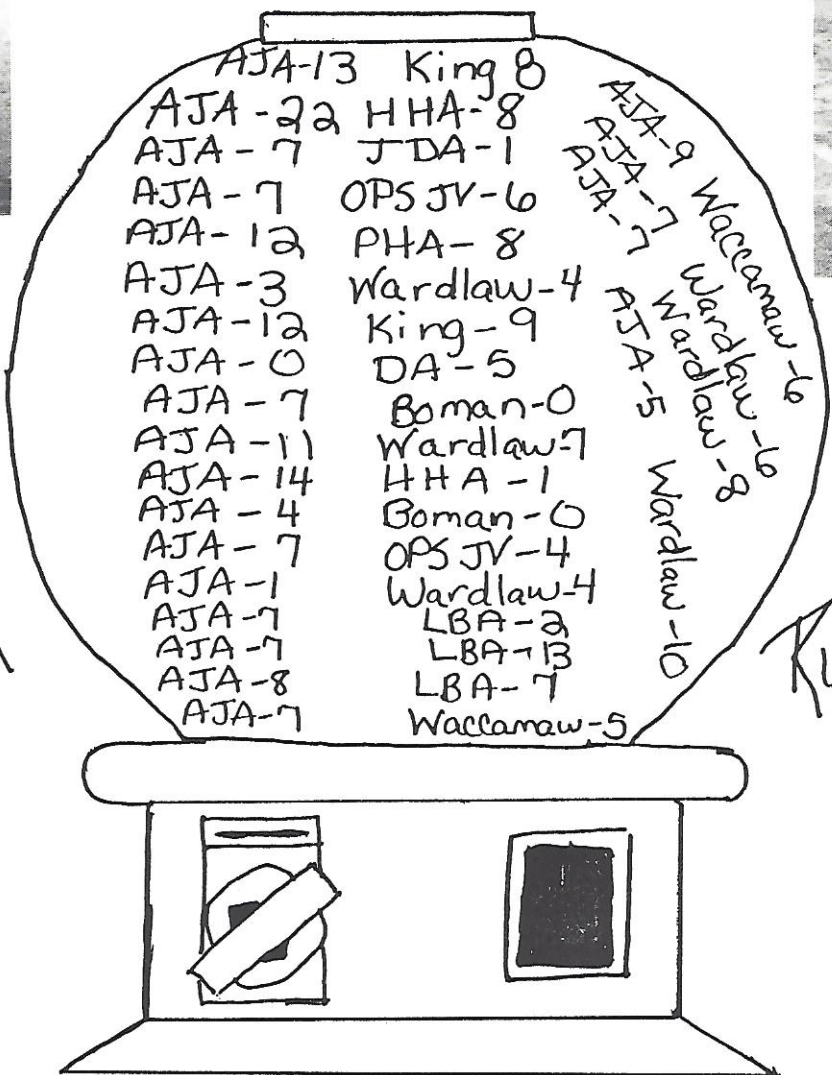 AJA-13 King 8
AJA-22 HHA-8
AJA-7 JDA-1
AJA-7 OPS JV-6
AJA-12 PHA-8
AJA-3 Wardlaw-4
AJA-12 King-9
AJA-0 DA-5
AJA-7 Boman-0
AJA-11 Wardlaw-7
AJA-14 HHA-1
AJA-4 Boman-0
AJA-7 OPS JV-4
AJA-1 Wardlaw-4
AJA-7 LBA-2
AJA-7 LBA-13
AJA-8 LBA-7
AJA-7 Waccamaw-5
AJA-9 Waccamaw-6
AJA-7 Wardlaw-6
AJA-7 Wardlaw-8
AJA-5 Wardlaw-10